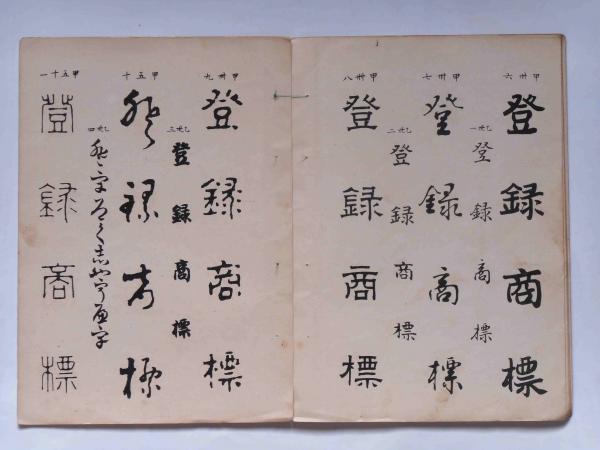 甲卌六
登録商標
乙卅一
登録商標
甲卌七
登録商標
乙卅二
登録商標
甲卌八
登録商標
甲卌九
登録商標
乙卅三
登録商標
甲五十
登録商標
乙卅四
甲五十一
登録商標